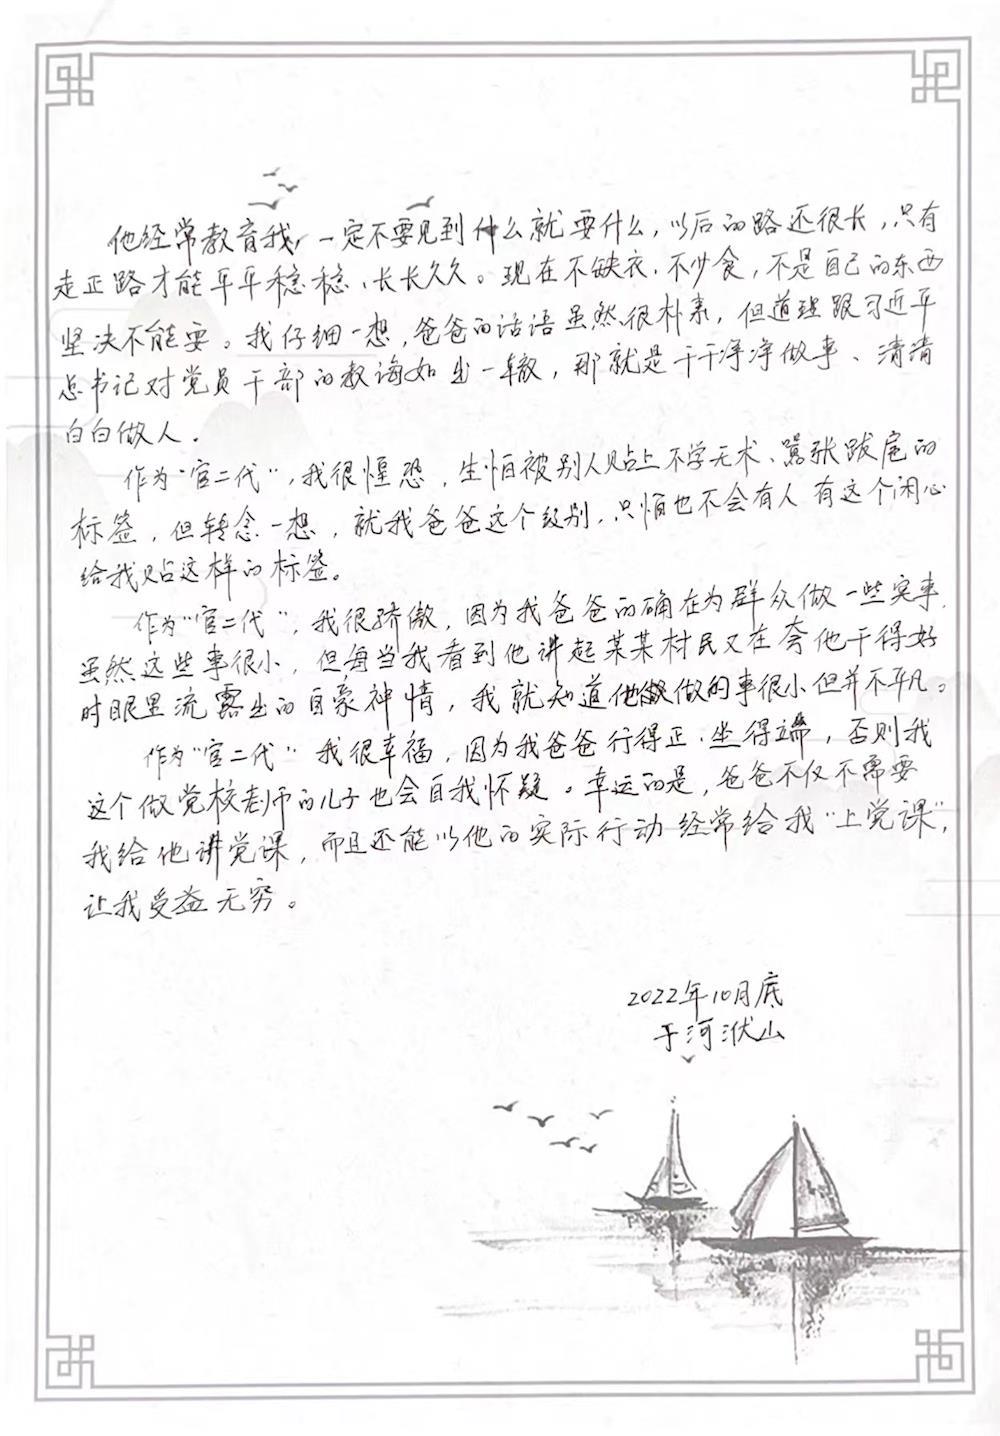 他经常教育我，一定不要见到什么就要什么，以后的路还很长，只有
走正路才能平平稳稳、长长久久。现在不缺衣、不少食，不是自己的东西
坚决不能要。我仔细一想，爸爸的话语虽然很朴素，但道理跟习近平
总书记对党员干部的教诲如出一辙，那就是干干净净做事、清清
白白做人。
作为“官二代”，我很惶恐，生怕被别人贴上不学无术、嚣张跋扈的
标签，但转念一想，就我爸爸这个级别，只怕也不会有人有这个闲心
给我贴这样的标签。
作为“官二代”，我很骄傲，因为我爸爸的确在为群众做一些实事，
虽然这些事很小，但每当我看到他讲起某某村民又在夸他干得好
时眼里流露出的自豪神情，我就知道他做的事很小但并不平凡。
作为“官二代”我很幸福，因为我爸爸行得正、坐得端，否则我
这个做党校老师的儿子也会自我怀疑。幸运的是，爸爸不仅不需要
我给他讲党课，而且还能以他的实际行动经常给我“上党课”，
让我受益无穷。
2022年10月底
于河洑山